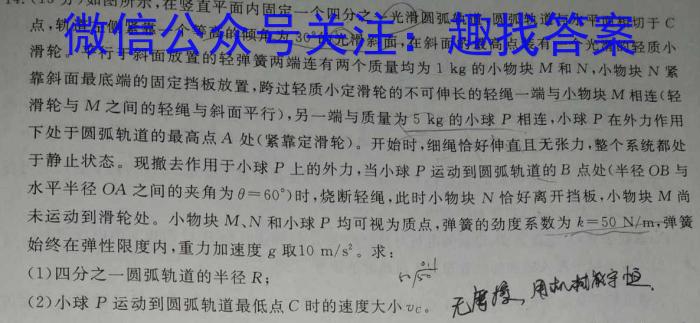 14.(15分)如图所示,在竖直平面内固定一个四分之一光滑圆弧轨道,圆弧轨道与水平面相切于 C
点,轨道 一个等高的倾角为30° 光滑斜面,在斜面 最高点 有一 光滑的轻质小
微信公众号关注:趣找答案
滑轮。平行于斜面放置的轻弹簧两端连有两个质量均为1 kg的小物块 M 和 N,小物块 N 紧
靠斜面最底端的固定挡板放置,跨过轻质小定滑轮的不可伸长的轻绳一端与小物块 M 相连(轻
滑轮与 M 之间的轻绳与斜面平行),另一端与质量为5 kg的小球 P 相连,小球 P 在外力作用
下处于圆弧轨道的最高点 A 处(紧靠定滑轮)。开始时,细绳恰好伸直且无张力,整个系统都处
于静止状态。现撤去作用于小球 P 上的外力,当小球 P 运动到圆弧轨道的 B 点处(半径 OB 与
水平半径 OA 之间的夹角为θ=60°)时,烧断轻绳,此时小物块 N 恰好离开挡板,小物块 M 尚
未运动到滑轮处。小物块 M、N 和小球 P 均可视为质点,弹簧的劲度系数为 k=50 N/m,弹簧
始终在弹性限度内,重力加速度 g 取10 m/s²。求:
(1)四分之一圆弧轨道的半径 R;
(2)小球 P 运动到圆弧轨道最低点 C 时的速度大小 v_C。
无摩擦,用机械能守恒.